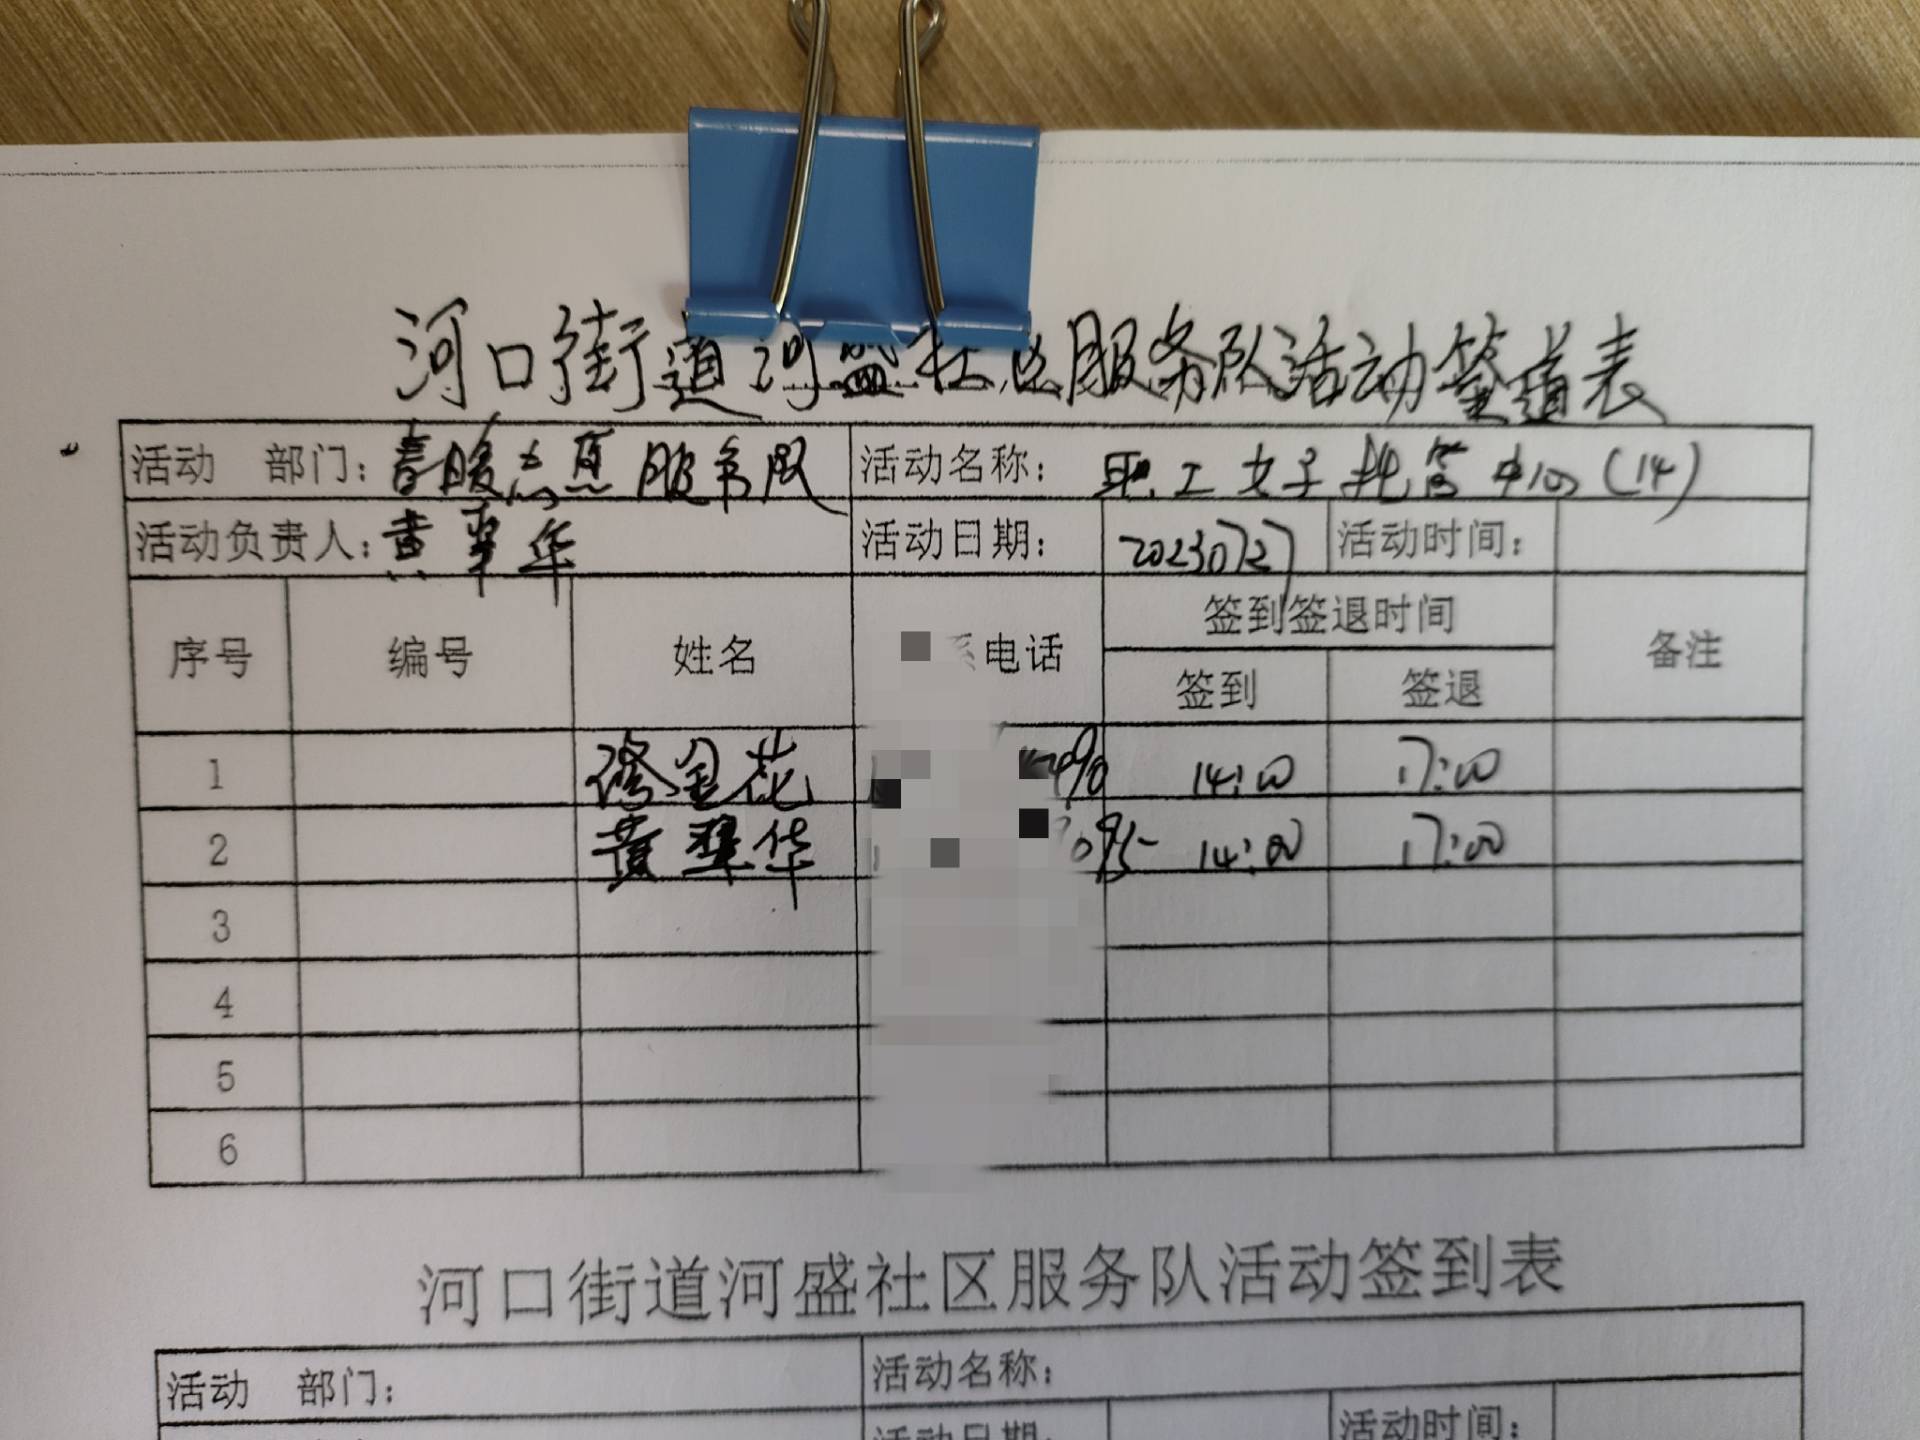 河口街道河盛社区服务队活动签道表
活动 部门：春暖志愿服务队 活动名称：职工女子托管中心（14）
活动负责人：黄翠华 活动日期：20230727 活动时间：
序号 编号 姓名 系电话 签到签退时间 备注
签到 签退
1 修金花 14:00 17:00
2 黄翠华 14:00 17:00
3
4
5
6
河口街道河盛社区服务队活动签到表
活动 部门： 活动名称：
活动日期： 活动时间：